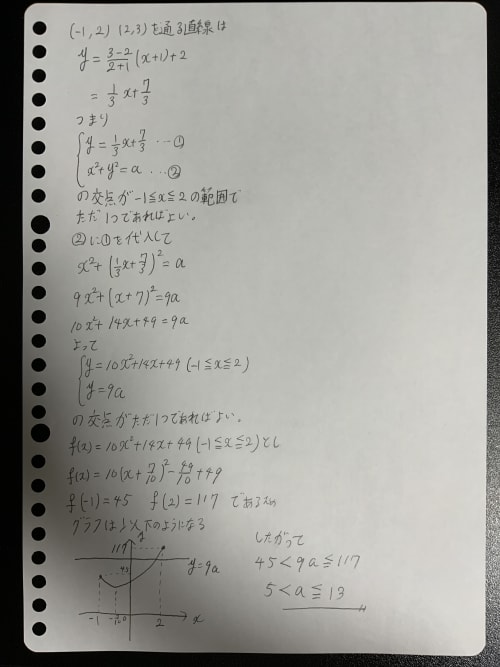 (-1,2) (2,3)を通る直線は
y = \frac{3-2}{2+1}(x+1)+2
= \frac{1}{3}x+\frac{7}{3}
つまり
y=\frac{1}{3}x+\frac{7}{3} … ①
x²+y²=a … ②
の交点が -1≦x≦2 の範囲で
ただ1つであればよい。
②に①を代入して
x²+(\frac{1}{3}x+\frac{7}{3})²=a
9x²+(x+7)²=9a
10x²+14x+49=9a
よって
y=10x²+14x+49 (-1≦x≦2)
y=9a
の交点がただ1つであればよい。
f(x)=10x²+14x+49 (-1≦x≦2)とし
f(x)=10(x+\frac{7}{10})²-\frac{49}{10}+49
f(-1)=45 f(2)=117 であるため
グラフは以下のようになる
y
117
45
y=9a
-1
-\frac{7}{10}
0
2
x
したがって
45<9a≦117
5<a≦13